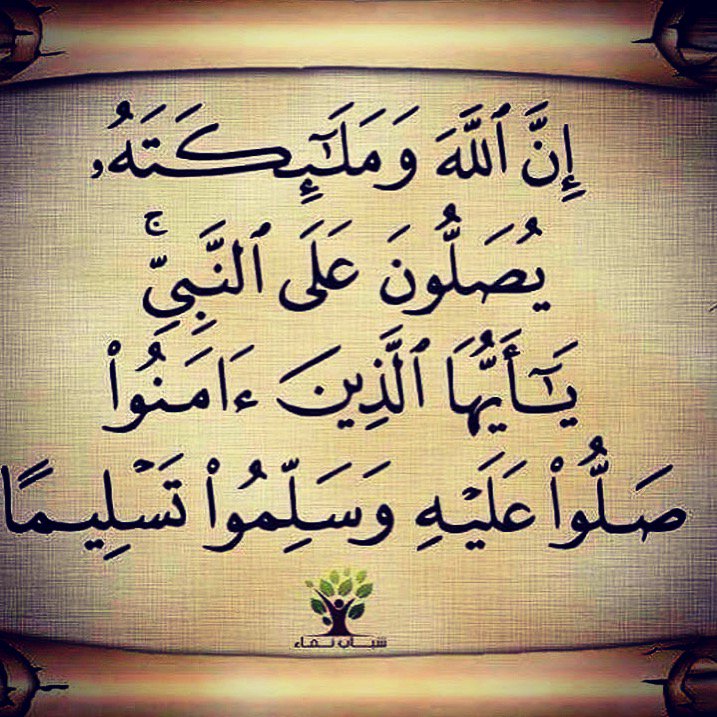 إِنَّ ٱللَّهَ وَمَلَٰٓئِكَتَهُۥ
يُصَلُّونَ عَلَى ٱلنَّبِيِّۚ
يَٰٓأَيُّهَا ٱلَّذِينَ ءَامَنُوا۟
صَلُّوا۟ عَلَيْهِ وَسَلِّمُوا۟ تَسْلِيمًا
شباب نماء